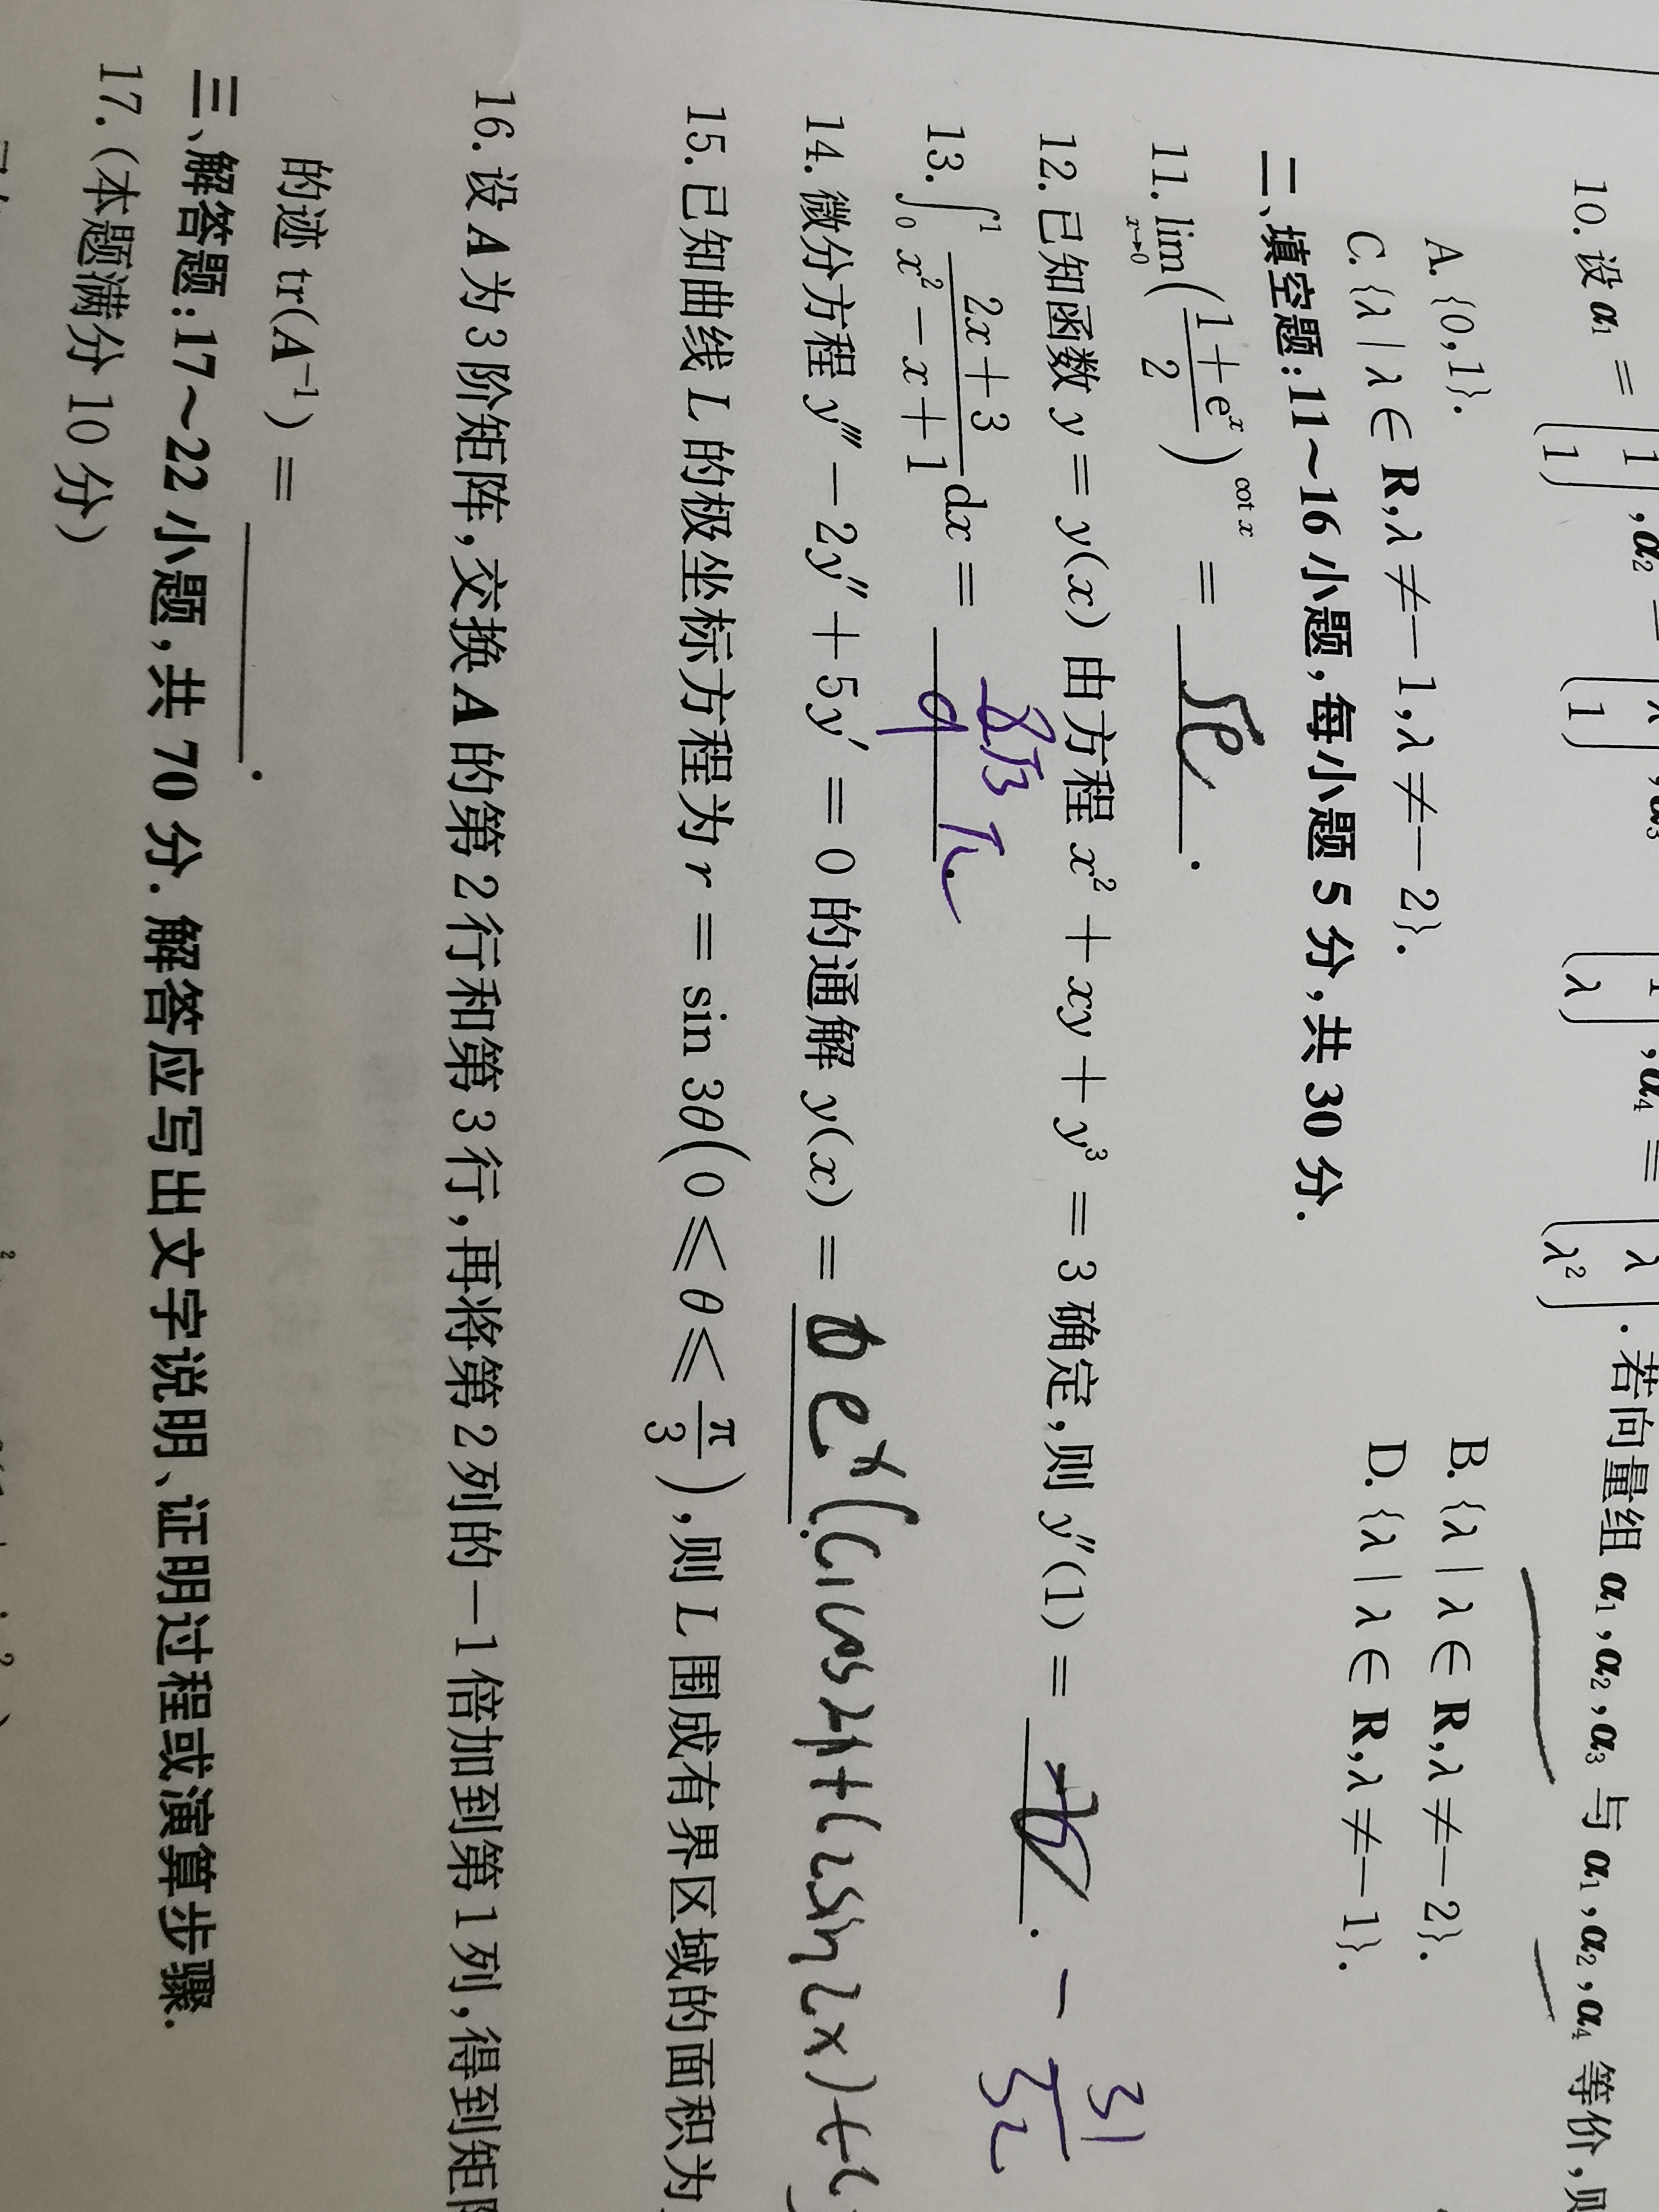 10. 设 α₁ = (1 1), α₂ = (λ 1), α₃ (1 λ), α₄ = (λ λ²). 若向量组 α₁,α₂,α₃ 与 α₁,α₂,α₄ 等价,则
A. {0,1}. B. {λ | λ ∈ R,λ ≠ −2}.
C. {λ | λ ∈ R,λ ≠ −1,λ ≠ −2}. D. {λ | λ ∈ R,λ ≠ −1}.
二、填空题:11~16 小题,每小题 5 分,共 30 分.
11. lim_{x→0} ((1+eˣ)/2)^{cot x} = √e.
12. 已知函数 y = y(x) 由方程 x² + xy + y³ = 3 确定,则 y″(1) = . − 31/32
13. ∫₀¹ (2x+3)/(x²−x+1) dx = 8√3/9 π.
14. 微分方程 y‴ − 2y″ + 5y′ = 0 的通解 y(x) = eˣ(C₁cos2x+C₂sin2x)+C₃
15. 已知曲线 L 的极坐标方程为 r = sin 3θ(0 ⩽ θ ⩽ π/3),则 L 围成有界区域的面积为
16. 设 A 为 3 阶矩阵,交换 A 的第 2 行和第 3 行,再将第 2 列的 −1 倍加到第 1 列,得到矩阵
的迹 tr(A⁻¹) = .
三、解答题:17~22 小题,共 70 分. 解答应写出文字说明、证明过程或演算步骤.
17. (本题满分 10 分)